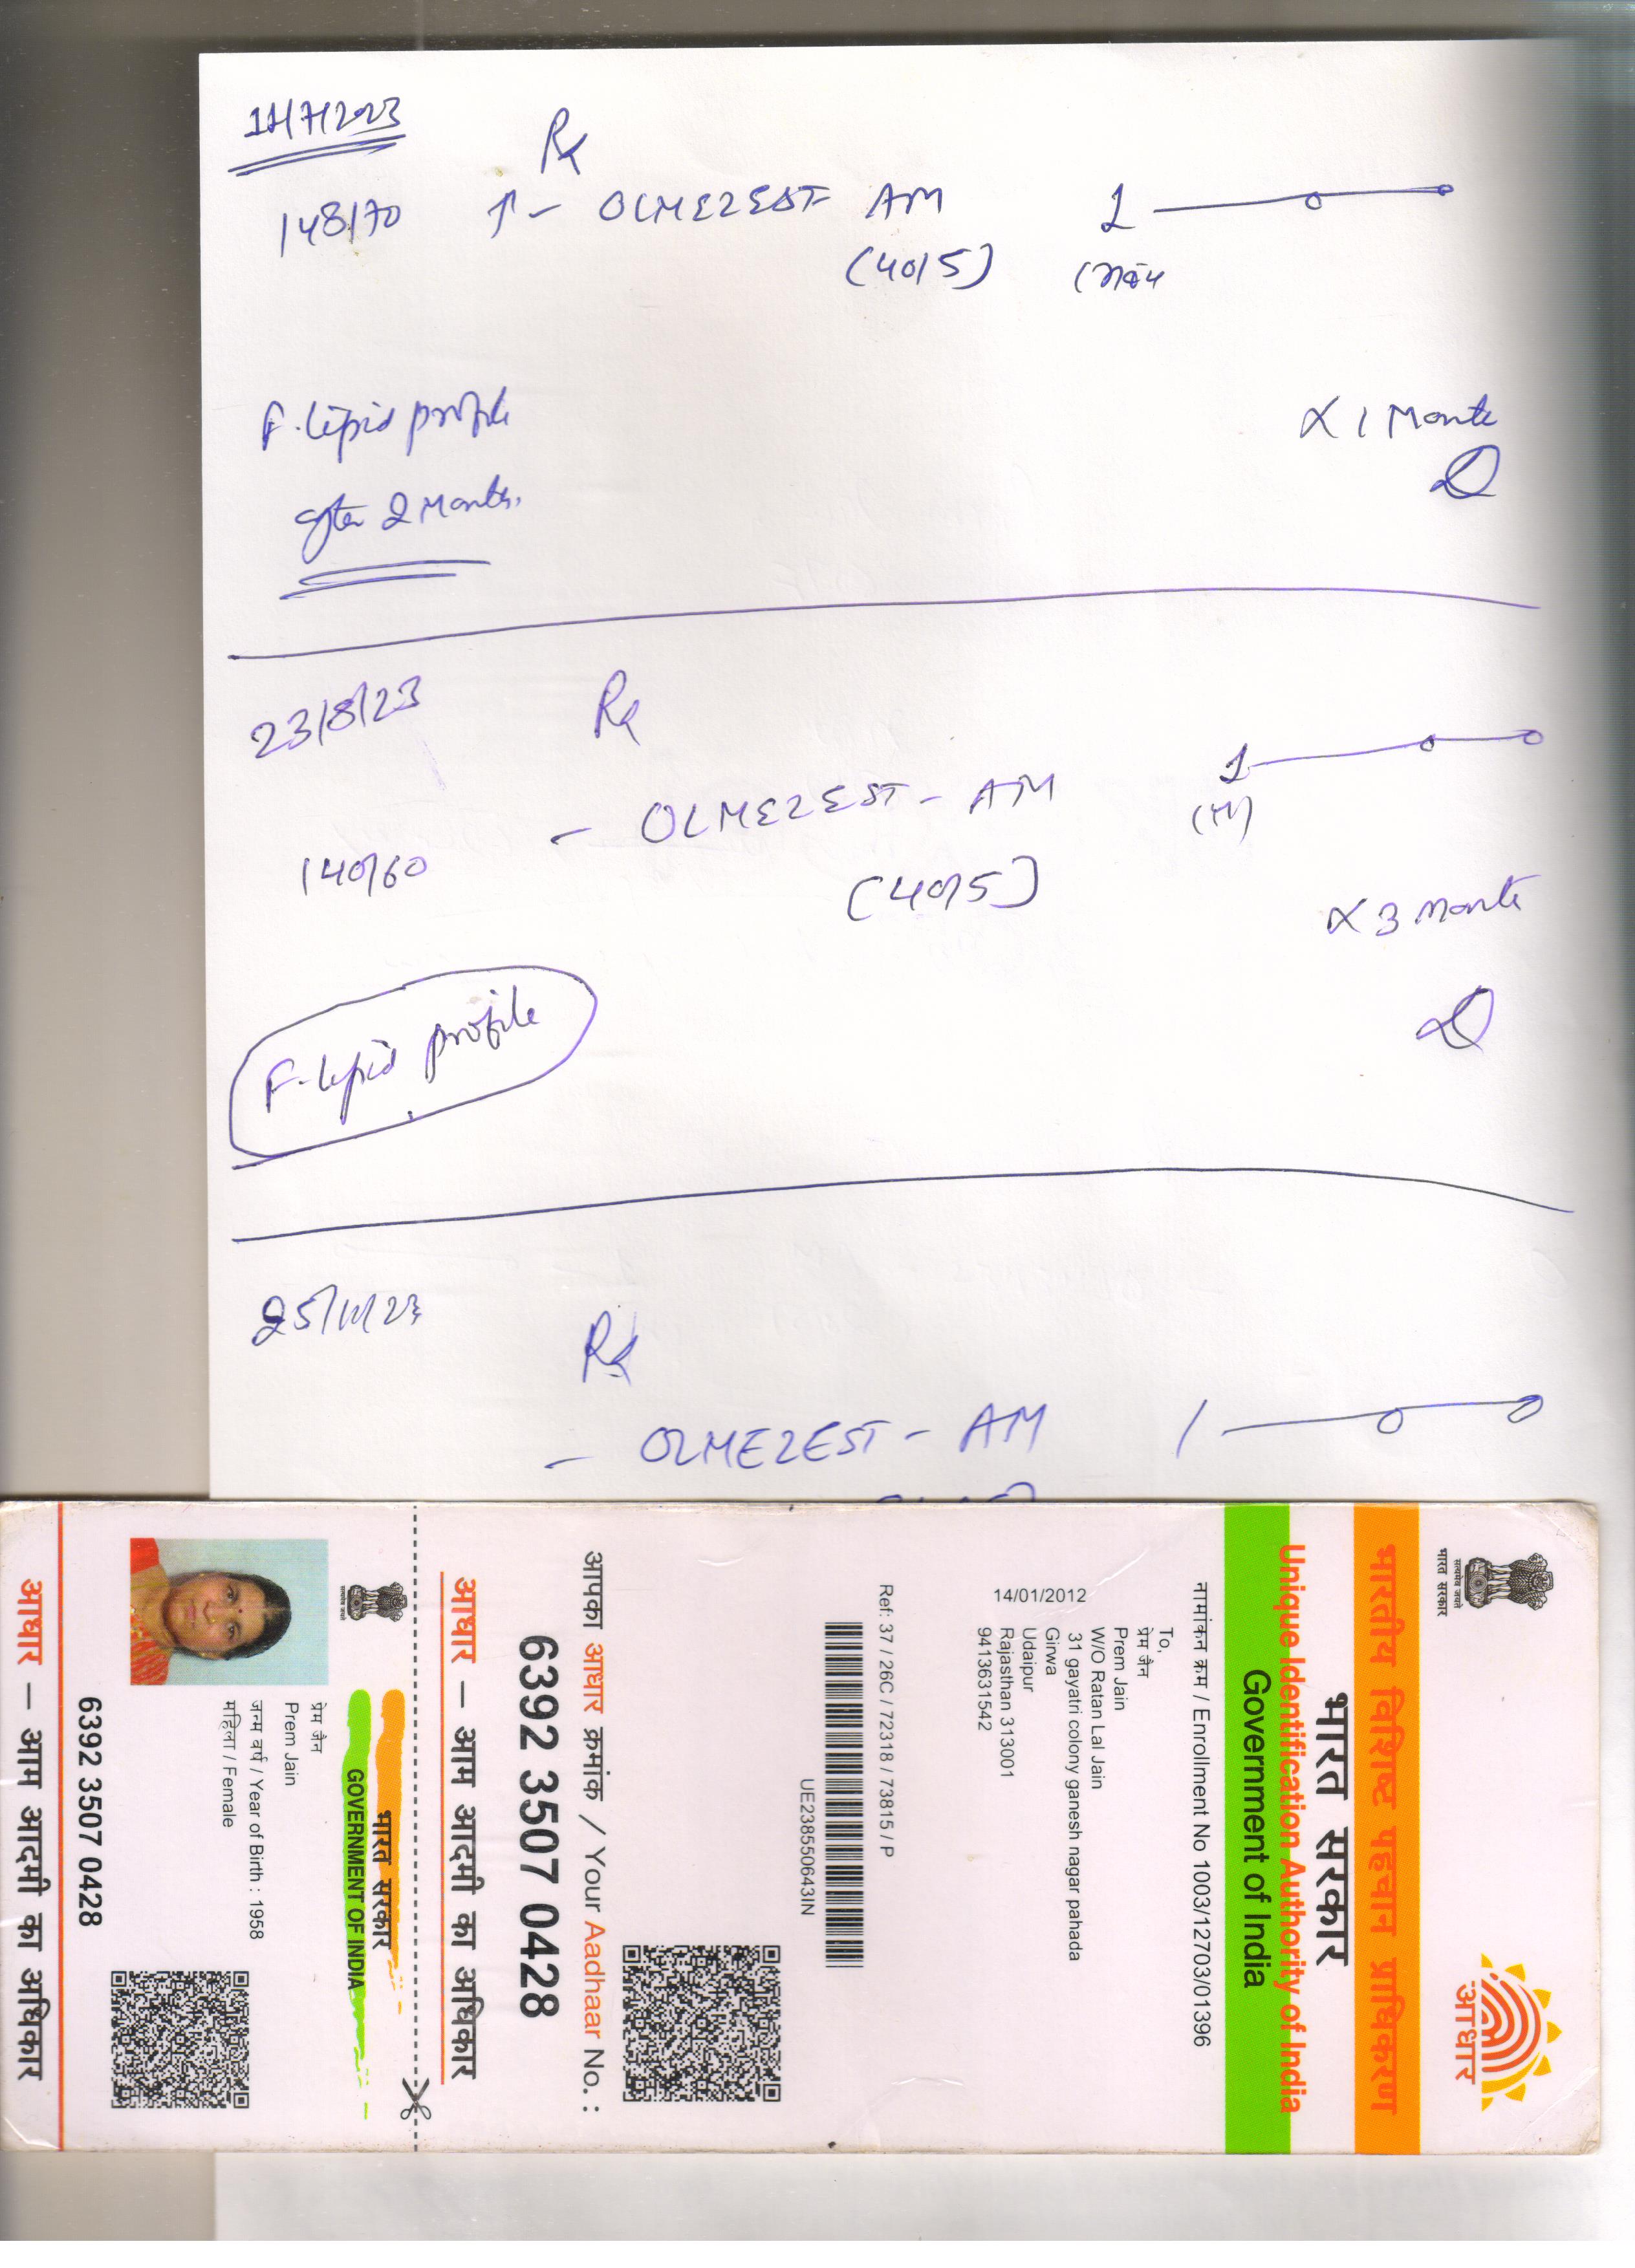 148/70
Rx
↑ - OLMEZEST AM
(40/5)
1 — 0 — 0
F. lipid profile
after 2 Months.
x 1 Month
23/8/23
Rx
140/60
- OLMEZEST - AM
(40/5)
1 — 0 — 0
x 3 Month
F. lipid profile
25/11/23
Rx
- OLMEZEST - AM
1 — 0 — 0
सत्यमेव जयते
भारत सरकार
आधार
भारतीय विशिष्ट पहचान प्राधिकरण
भारत सरकार
Unique Identification Authority of India
Government of India
नामांकन क्रम / Enrollment No 1003/12703/01396
To,
प्रेम जैन
Prem Jain
W/O Ratan Lal Jain
31 gayatri colony ganesh nagar pahada
Girwa
Udaipur
Rajasthan 313001
9413631542
14/01/2012
Ref: 37 / 26C / 72318 / 73815 / P
UE238550643IN
आपका आधार क्रमांक / Your Aadhaar No. :
6392 3507 0428
आधार — आम आदमी का अधिकार
सत्यमेव जयते
भारत सरकार
GOVERNMENT OF INDIA
प्रेम जैन
Prem Jain
जन्म वर्ष / Year of Birth : 1958
महिला / Female
6392 3507 0428
आधार — आम आदमी का अधिकार